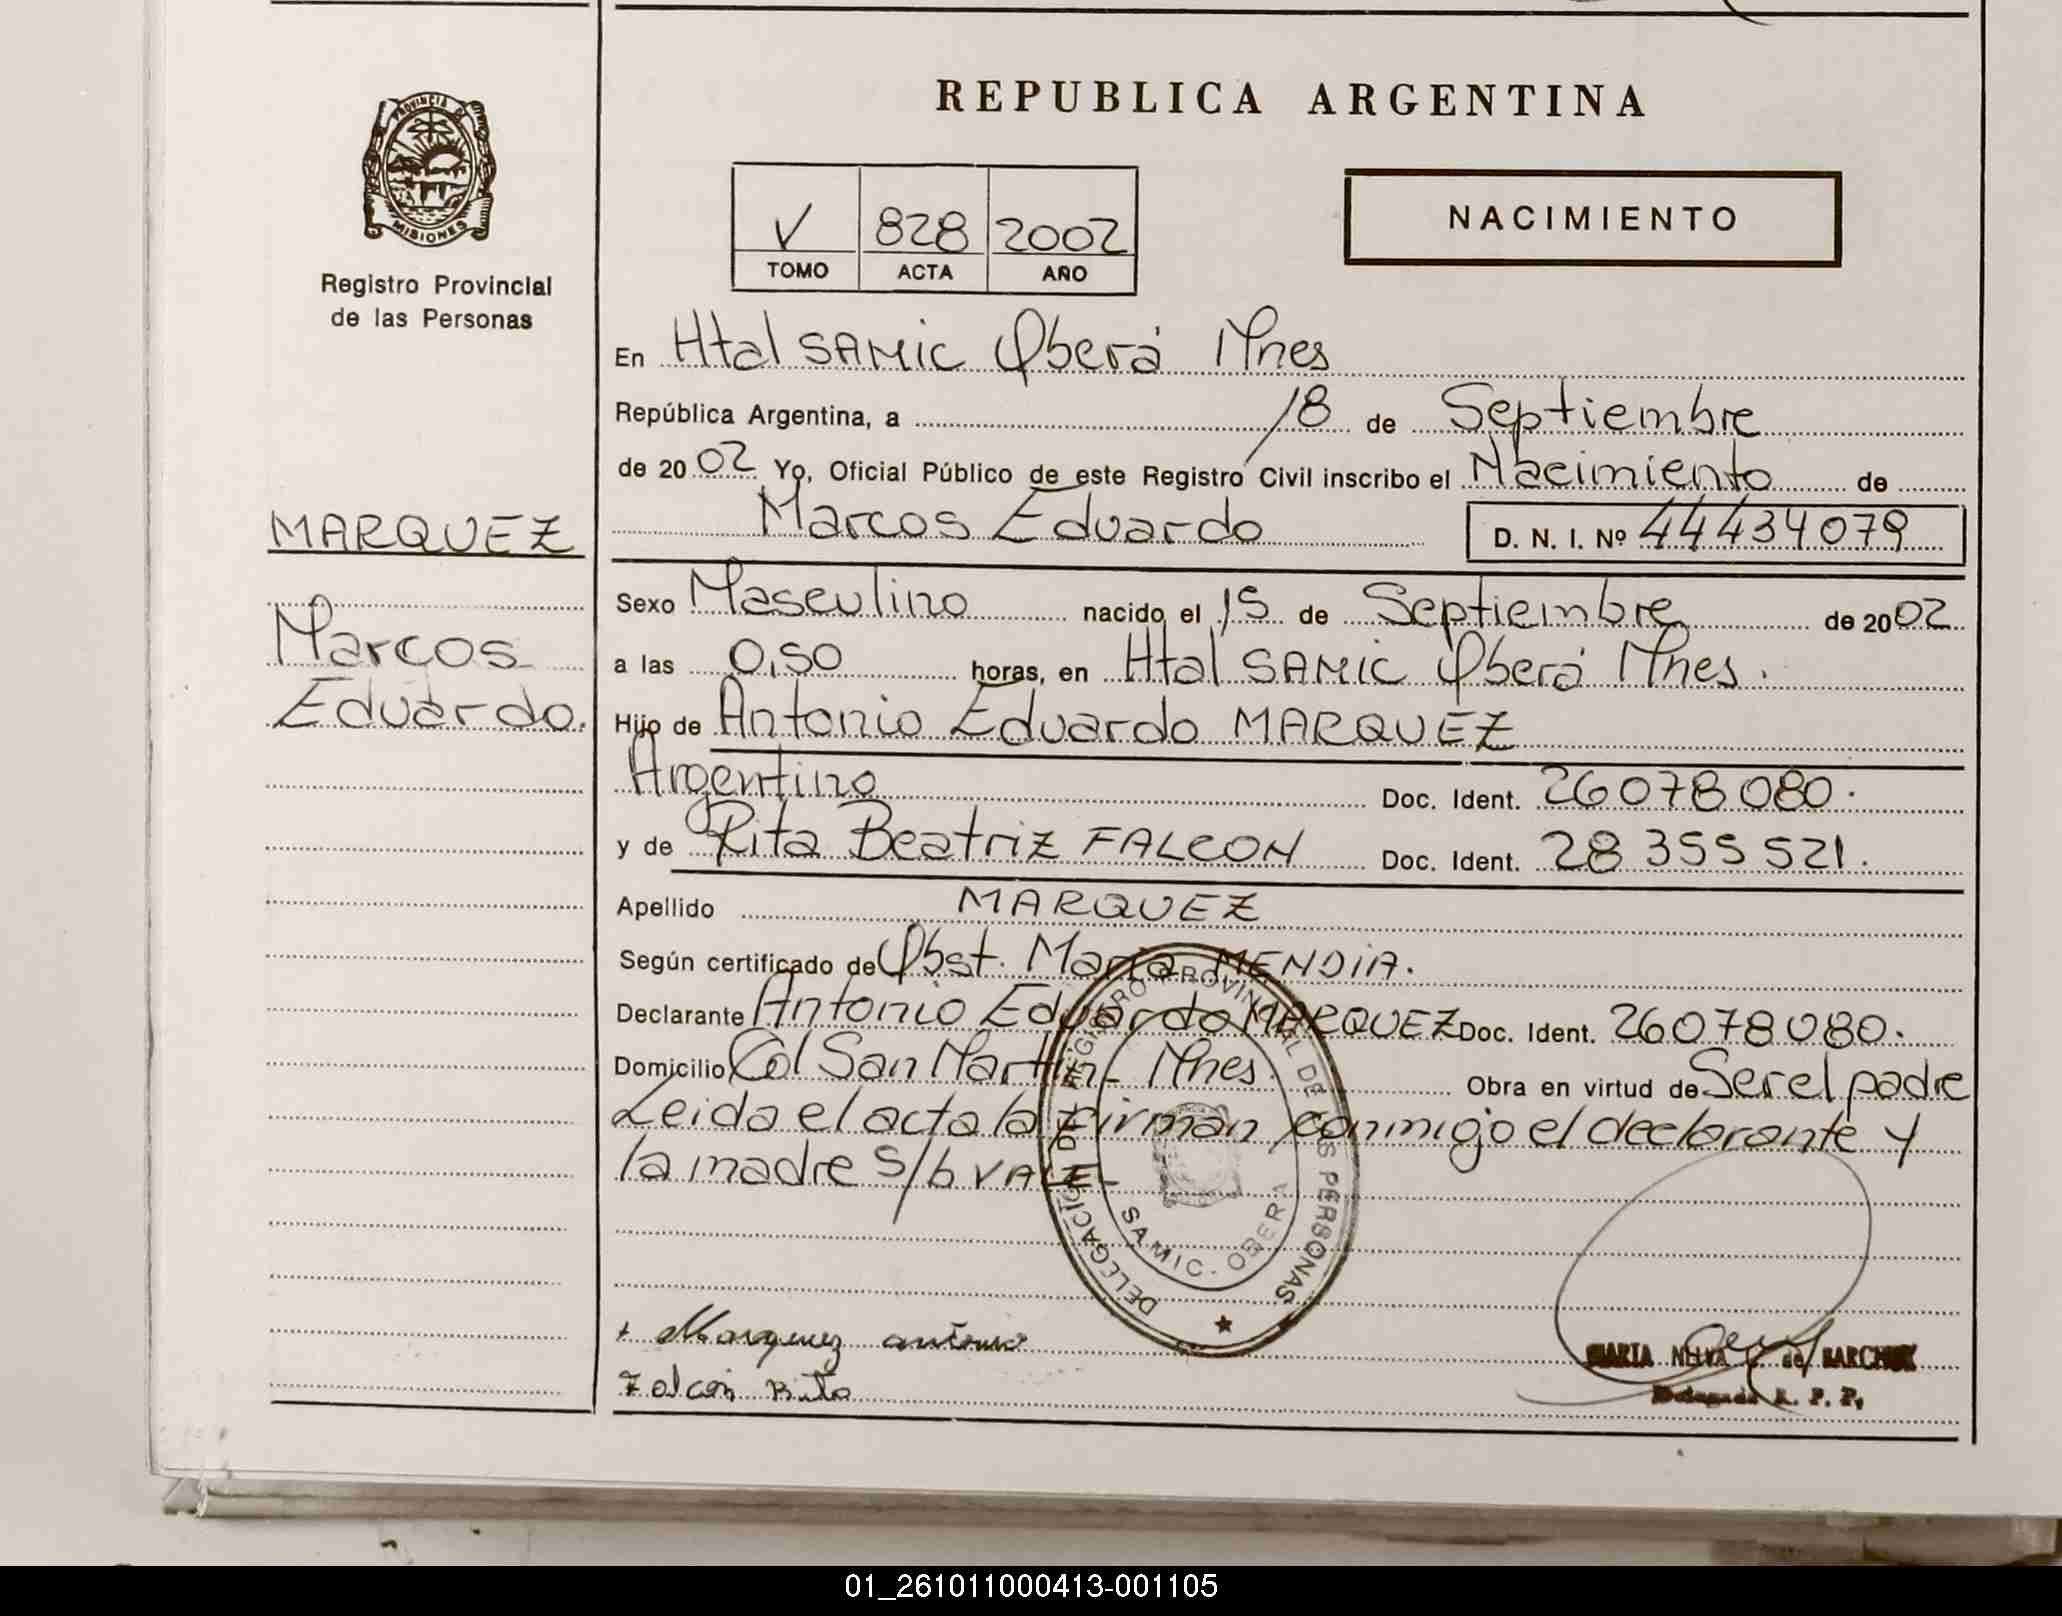 REPUBLICA ARGENTINA
PROVINCIA DE
MISIONES
Registro Provincial
de las Personas
V 828 2002
TOMO ACTA AÑO
NACIMIENTO
En Htal SAMIC Oberá Mnes
República Argentina, a 18 de Septiembre
de 2002 Yo, Oficial Público de este Registro Civil inscribo el Nacimiento de
Marcos Eduardo D. N. I. Nº 44434079
MARQUEZ
Marcos
Eduardo.
Sexo Masculino nacido el 15 de Septiembre de 2002
a las 0,50 horas, en Htal SAMIC Oberá Mnes.
Hijo de Antonio Eduardo MARQUEZ
Argentino Doc. Ident. 26078080.
y de Rita Beatriz FALCON Doc. Ident. 28355521.
Apellido MARQUEZ
Según certificado de Obst. Maria MENDIIA.
Declarante Antonio Eduardo MARQUEZ Doc. Ident. 26078080.
Domicilio Col San Martin - Mnes Obra en virtud de Ser el padre
Leida el acta la firman conmigo el declarante y
la madre s/b VALE-
DELEGACIÓN DEL REGISTRO PROVINCIAL DE LAS PERSONAS
SAMIC - OBERA
Marquez antonio
Falcon Rita
MARIA de BARCHUK
Delegada R. P. P.
01_261011000413-001105